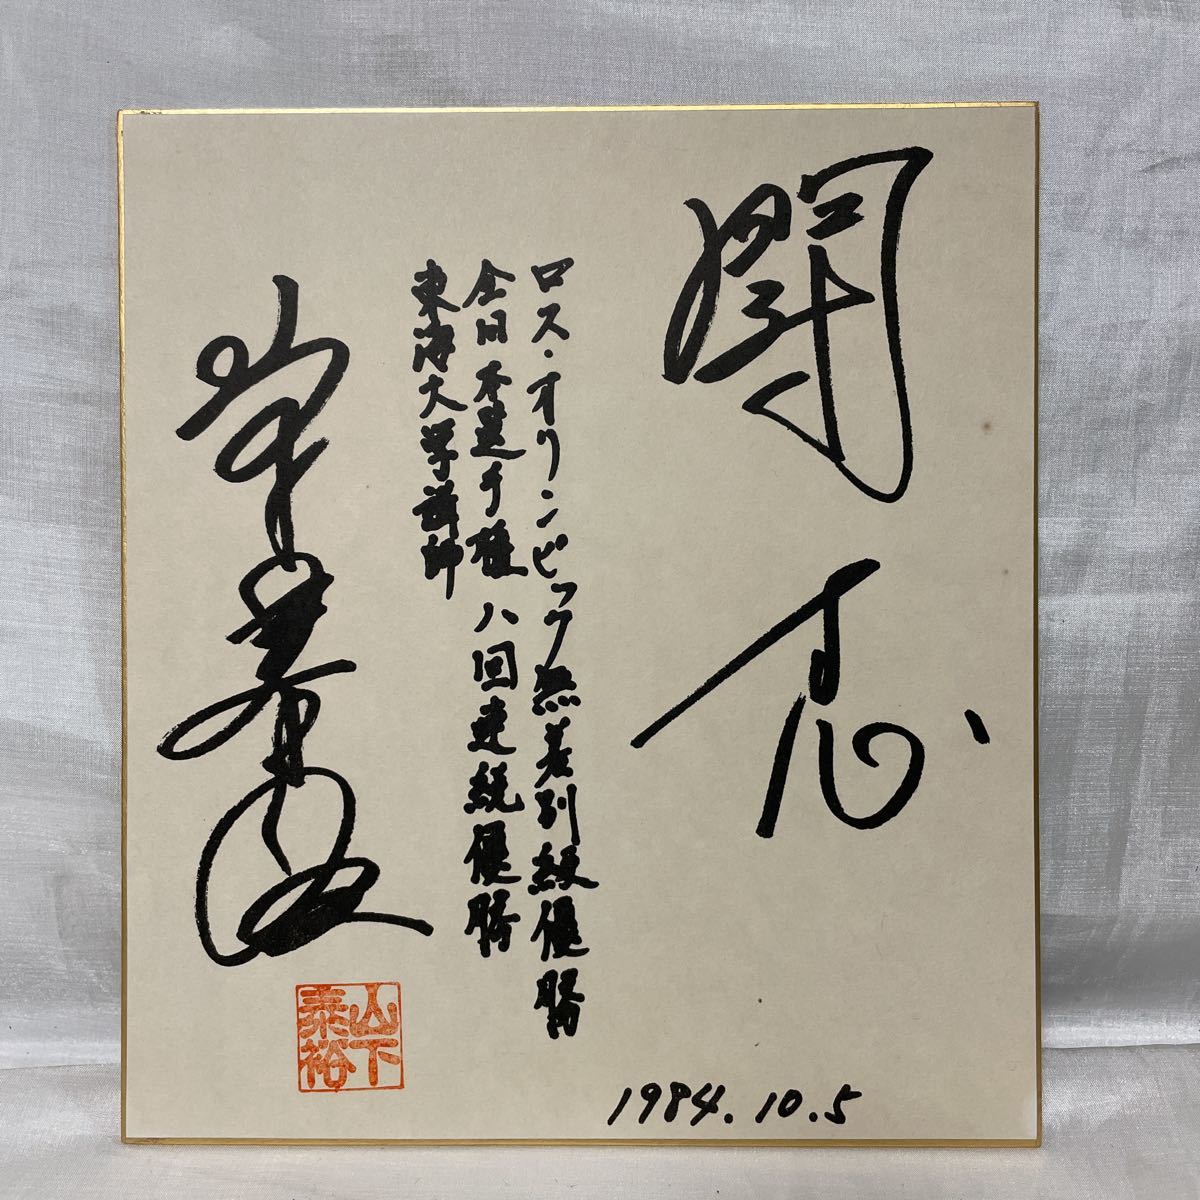 闘志
ロス・オリンピック無差別級優勝
全日本選手権八回連続優勝
東海大学講師
山下泰裕
1984.10.5